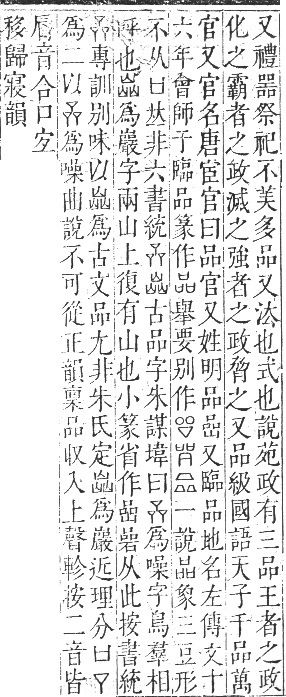 又禮器祭祀不美多品又法也式也說苑政有三品王者之政
化之霸者之政滅之強者之政脅之又品級國語天子千品萬
官又官名唐宦官曰品官又姓明品嵒又臨品地名左傳文十
六年會師于臨品篆作品舉要別作一說品象三豆形
不从口𠀤非六書統古品字朱謀㙔曰為噪字鳥羣相
呼也為巖字兩山上復有山也小篆省作嵒碞从此按書統
專訓別味以為古文品尤非朱氏定為巖近理分口丫
為二以為噪曲說不可從正韻稟品収入上聲軫按二音皆
脣音合口宐
移歸寑韻